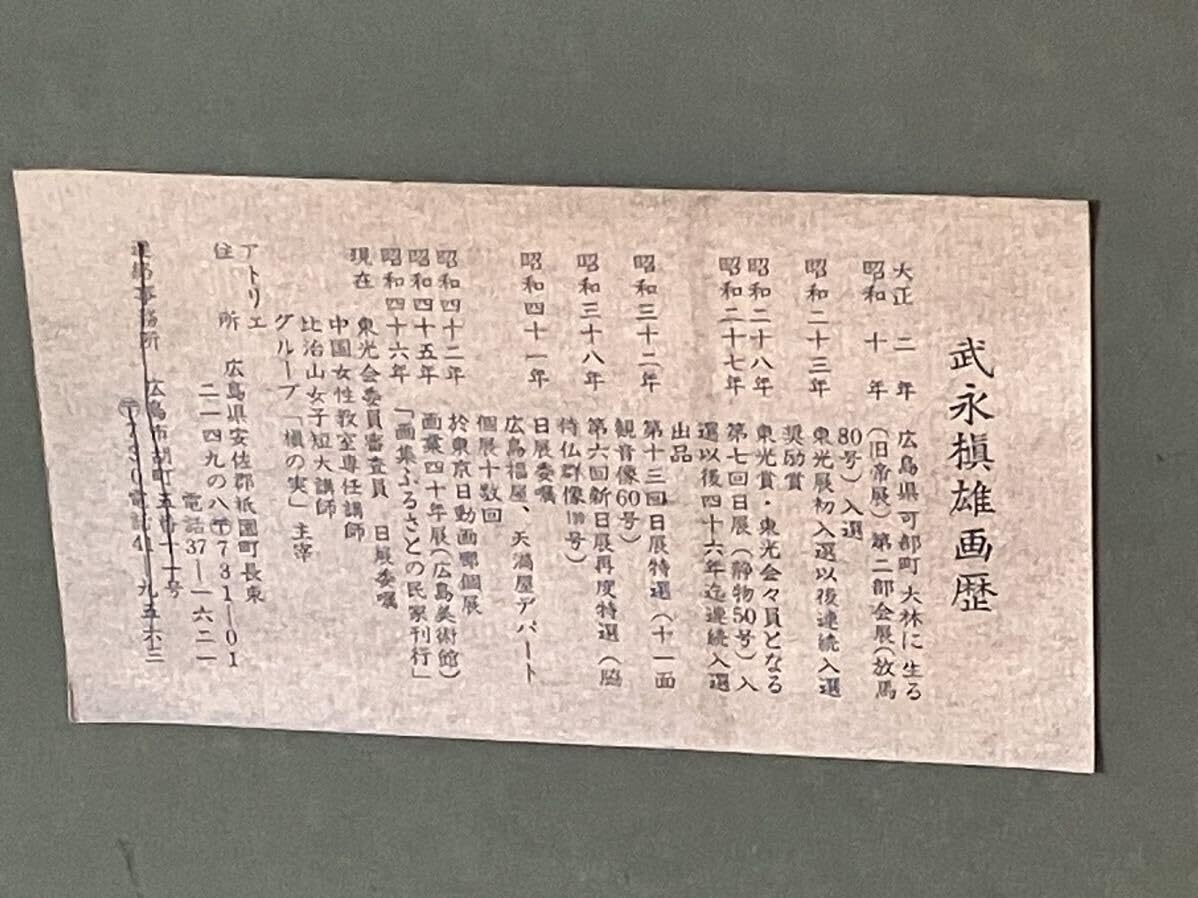 武永槇雄画歴
大正 二 年 広島県可部町大林に生る
昭和 十 年 (旧帝展)第二部会展(放馬
80号)入選
昭和二十三年 東光展初入選以後連続入選
奨励賞
昭和二十八年 東光賞・東光会々員となる
昭和二十七年 第七回日展(静物50号)入
選以後四十六年迄連続入選
出品
昭和三十二年 第十三回日展特選(十一面
観音像60号)
昭和三十八年 第六回新日展再度特選(脇
侍仏群像 号)
日展委嘱
昭和四十一年 広島福屋、天満屋デパート
個展十数回
昭和四十二年 於東京日動画廊個展
昭和四十五年 画業四十年展(広島美術館)
昭和四十六年 「画集ふるさとの民家刊行」
現在 東光会委員審査員 日展委嘱
中国女性教室専任講師
比治山女子短大講師
グループ「槇の実」主宰
アトリエ
住 所 広島県安佐郡祇園町長束
二一四九の八〒731―01
電話37―一六二一
連絡事務所 広島市胡町五番十一号
〒730電話41―九五六三